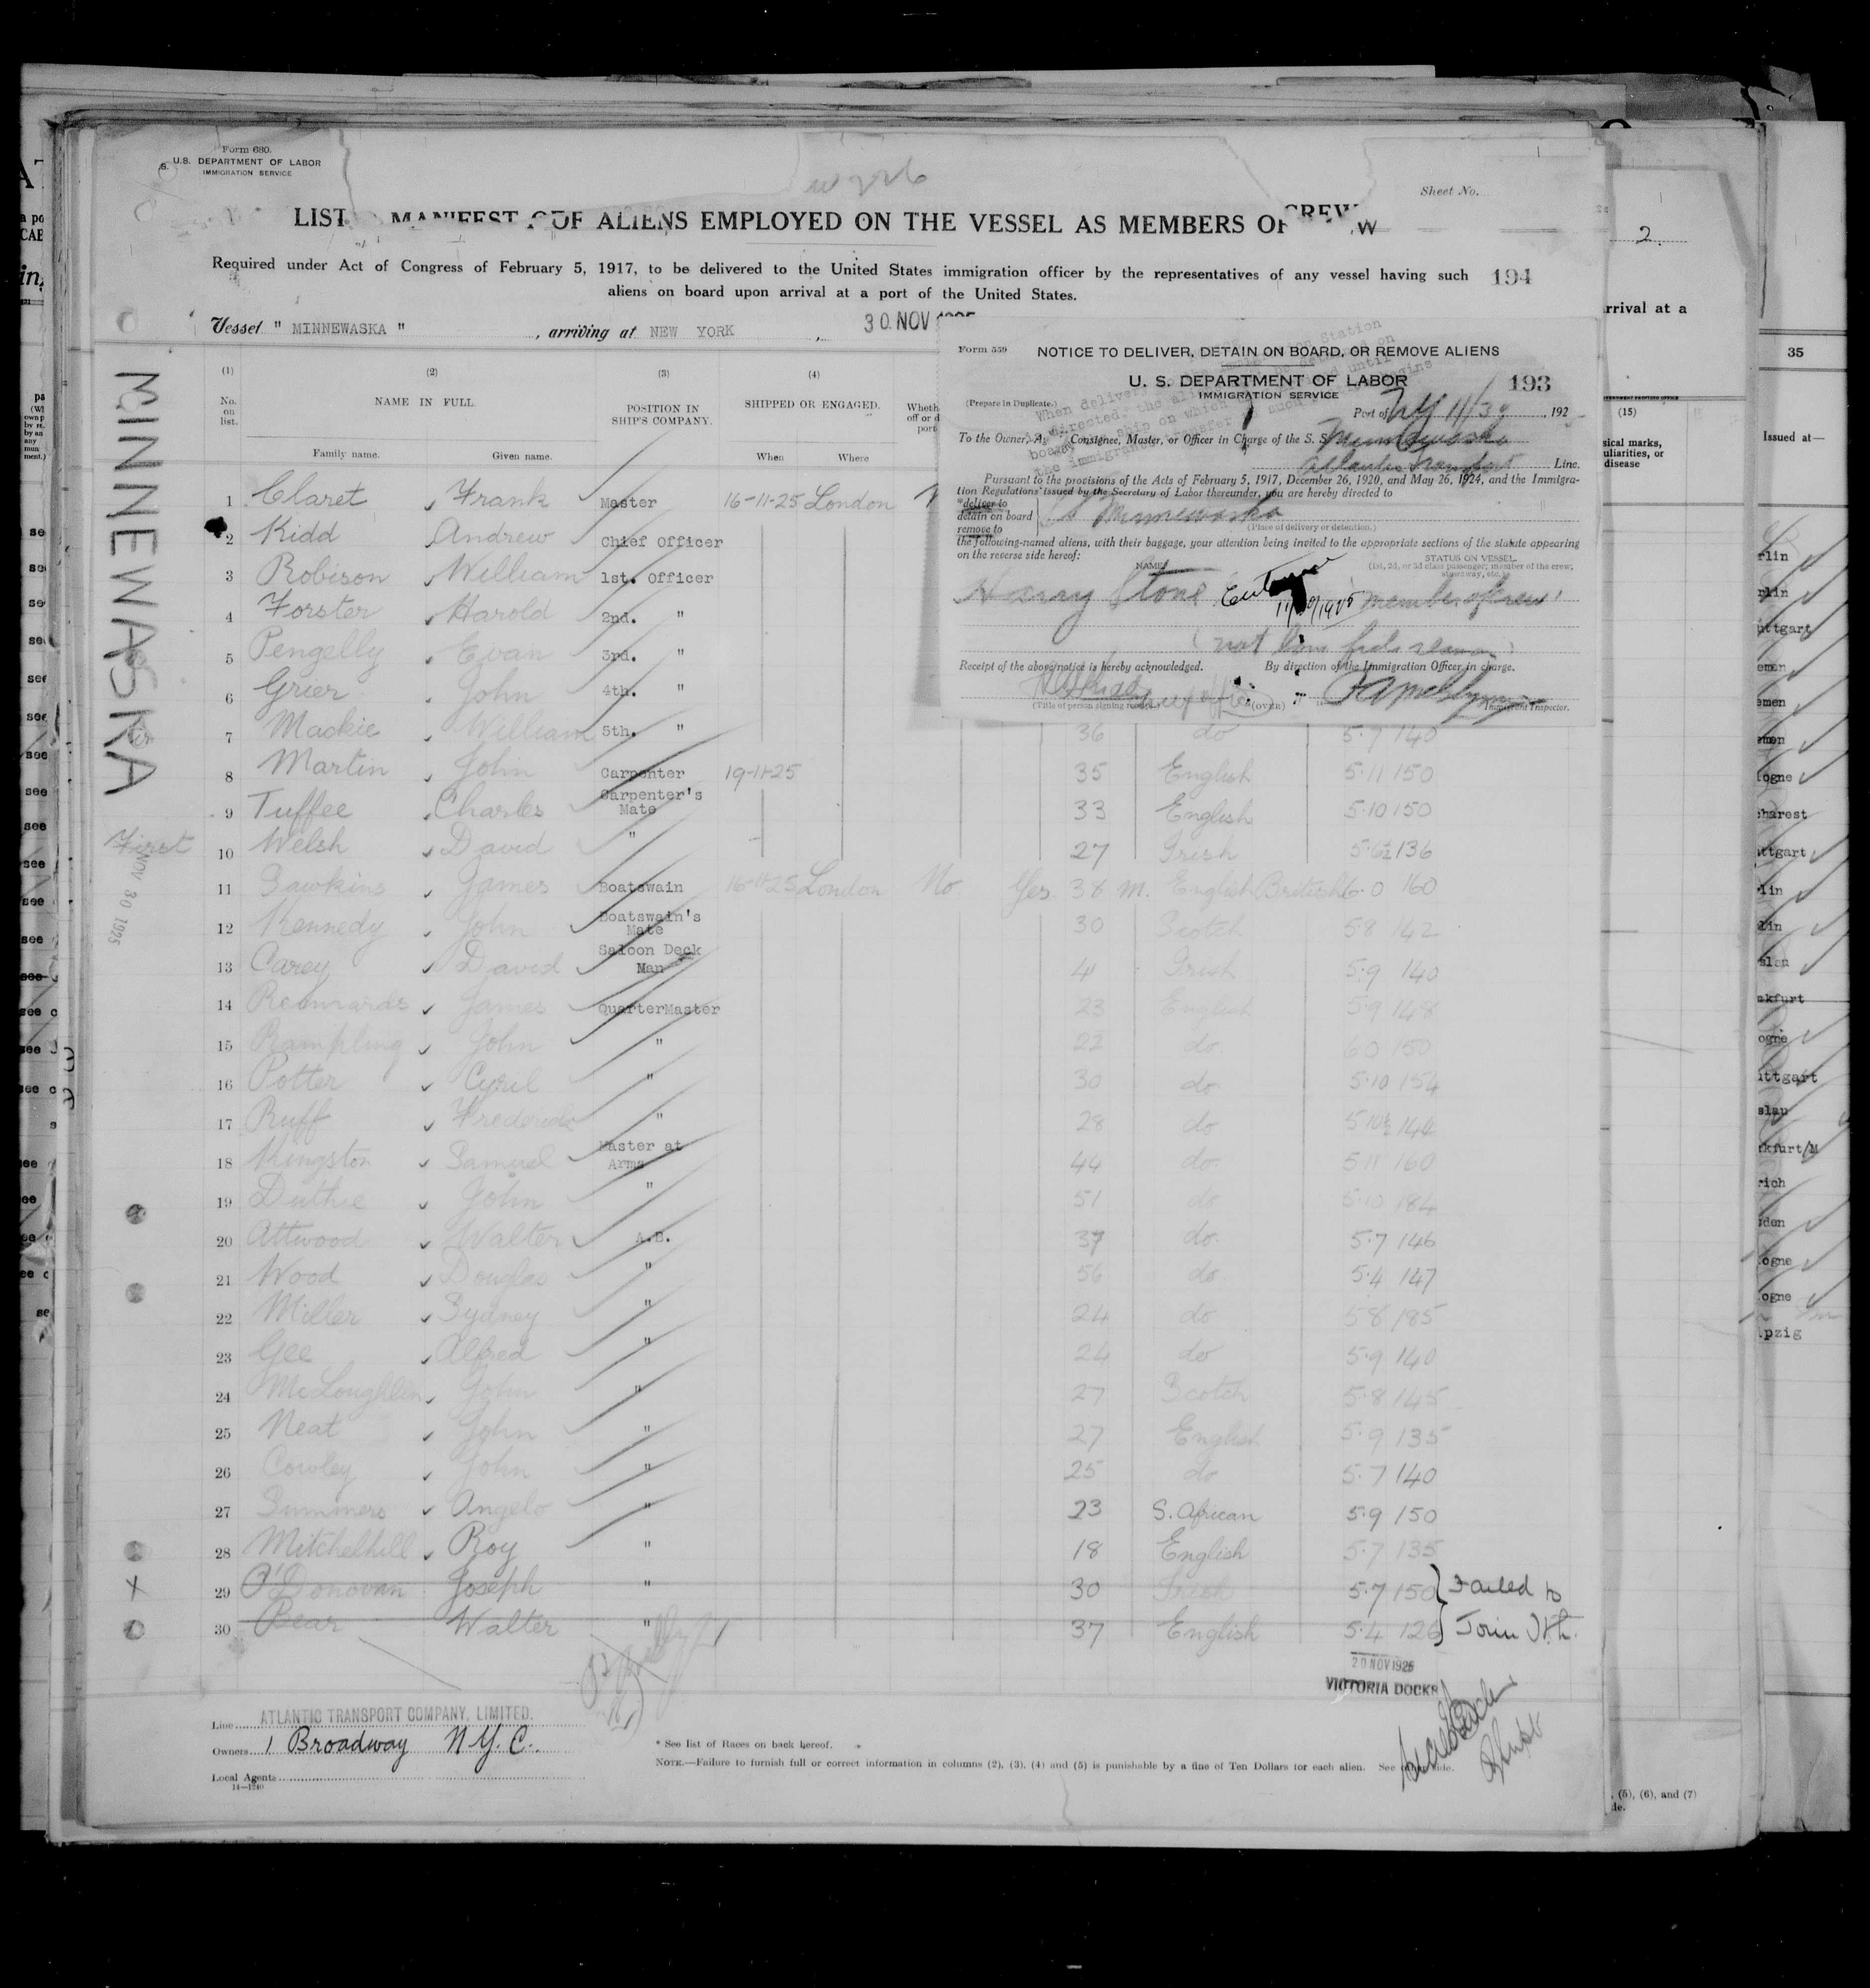 Form 680.
U.S. DEPARTMENT OF LABOR
IMMIGRATION SERVICE
Sheet No.
LIST MANIFEST OF ALIENS EMPLOYED ON THE VESSEL AS MEMBERS OF CREW
Required under Act of Congress of February 5, 1917, to be delivered to the United States immigration officer by the representatives of any vessel having such 194
aliens on board upon arrival at a port of the United States.
Vessel " MINNEWASKA " , arriving at NEW YORK , 30 NOV
MINNEWASKA
First
NOV 30 1925
(1) (2) (3) (4)
No. on list. NAME IN FULL. POSITION IN SHIP'S COMPANY. SHIPPED OR ENGAGED.
Family name. Given name. When Where
1 Claret Frank Master 16-11-25 London
2 Kidd Andrew Chief Officer
3 Robison William 1st. Officer
4 Forster Harold 2nd. "
5 Pengelly Evan 3rd. "
6 Grier John 4th. "
7 Mackie William 5th. " 36 do 5.7 140
8 Martin John Carpenter 19-11-25 35 English 5.11 150
9 Tuffee Charles Carpenter's Mate 33 English 5.10 150
10 Welsh David " 27 Irish 5.6½ 136
11 Sawkins James Boatswain 16-11-25 London No Yes 38 M. English British 6.0 160
12 Kennedy John Boatswain's Mate 30 Scotch 5.8 142
13 Carey David Saloon Deck Man 41 Irish 5.9 140
14 James QuarterMaster 23 English 5.9 148
15 Rampling John " 22 do. 6.0 150
16 Potter Cyril " 30 do 5.10 154
17 Ruff Frederick " 28 do 5.10½ 144
18 Kingston Samuel Master at Arms 44 do. 5.11 160
19 Duthie John " 51 do 5.10 184
20 Attwood Walter A.B. 37 do. 5.7 146
21 Wood Douglas " 56 do 5.4 147
22 Miller Sydney " 24 do 5.8 185
23 Gee Alfred " 24 do 5.9 140
24 McLoughlin John " 27 Scotch 5.8 145
25 Neat John " 27 English 5.9 135
26 Cowley John " 25 do 5.7 140
27 Summers Angelo " 23 S. African 5.9 150
28 Mitchelhill Roy " 18 English 5.7 135
29 O'Donovan Joseph " 30 Irish 5.7 150 } Failed to
30 Bear Walter " 37 English 5.4 126 } Join
20 NOV 1925
VICTORIA DOCKS
Line ATLANTIC TRANSPORT COMPANY, LIMITED.
Owners 1 Broadway N.Y.C.
Local Agents
14—1240
* See list of Races on back hereof.
NOTE.—Failure to furnish full or correct information in columns (2), (3), (4) and (5) is punishable by a fine of Ten Dollars for each alien. See other side.
Form 559
NOTICE TO DELIVER, DETAIN ON BOARD, OR REMOVE ALIENS
U. S. DEPARTMENT OF LABOR 193
IMMIGRATION SERVICE
(Prepare in Duplicate.)
Port of NY 11/30 , 192
To the Owner, Agent, Consignee, Master, or Officer in Charge of the S. S. Minnewaska
Atlantic Transport Line.
Pursuant to the provisions of the Acts of February 5, 1917, December 26, 1920, and May 26, 1924, and the Immigra-
tion Regulations issued by the Secretary of Labor thereunder, you are hereby directed to
*deliver to
detain on board SS Minnewaska
remove to
(Place of delivery or detention.)
the following-named aliens, with their baggage, your attention being invited to the appropriate sections of the statute appearing
on the reverse side hereof:
NAME STATUS ON VESSEL
(1st, 2d, or 3d class passenger; member of the crew; stowaway, etc.)
Harry Stone member of crew
(not bona fide seaman)
Receipt of the above notice is hereby acknowledged. By direction of the Immigration Officer in charge.
(Title of person signing receipt) (OVER) Immigrant Inspector.
2.
rrival at a
(15)
sical marks,
uliarities, or
disease
, (5), (6), and (7)
35
Issued at—